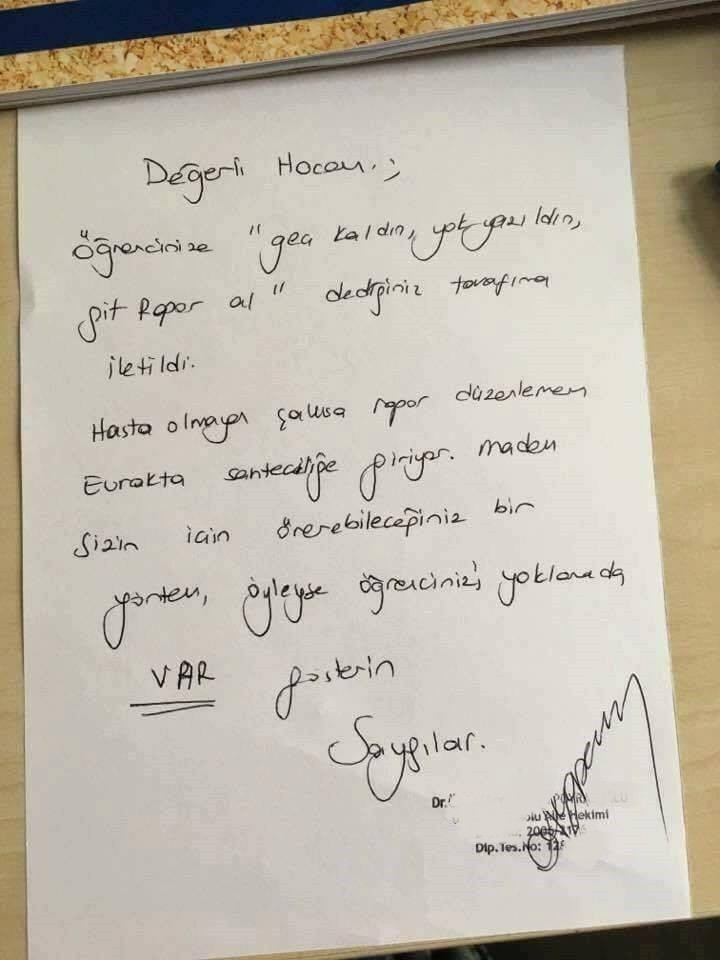 Değerli Hocam.;
Öğrencinize "geç kaldın, yok yazıldın,
git Rapor al" dediğiniz tarafıma
iletildi.
Hasta olmayan şahısa rapor düzenlemem
Evrakta sahteciliğe giriyor. Madem
Sizin için önerebileceğiniz bir
yöntem, öyleyse öğrencinizi yoklamada
VAR gösterin
Saygılar.
Dr.
Aile Hekimi
Dip.Tes.No: